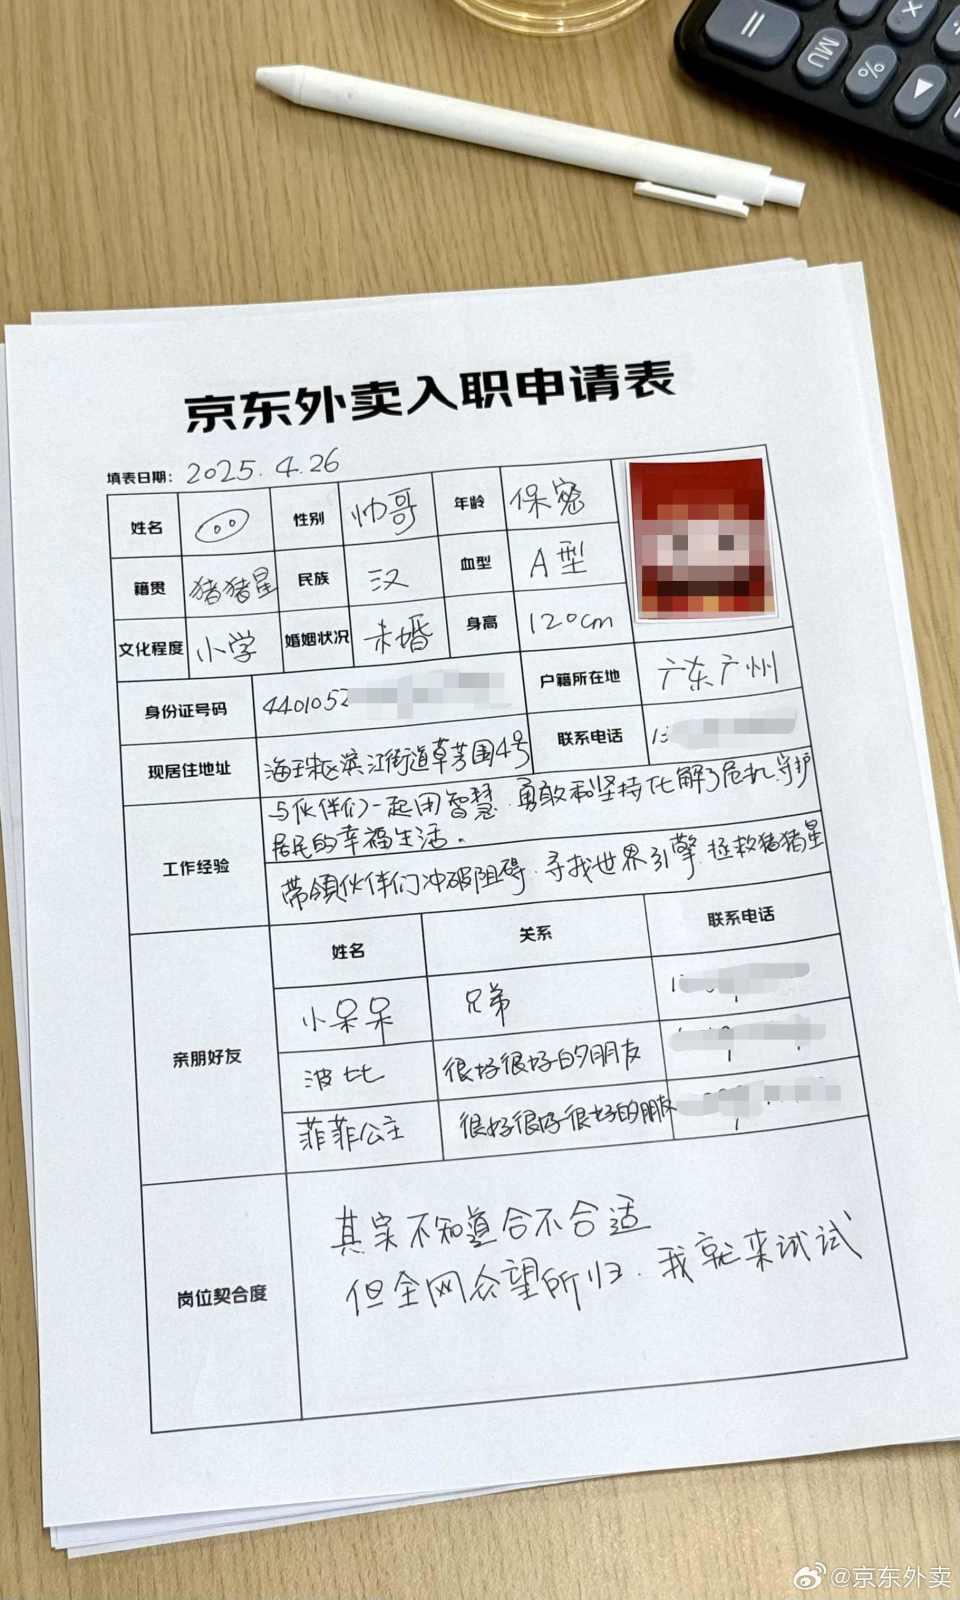 京东外卖入职申请表
填表日期: 2025.4.26
姓名 性别 帅哥 年龄 保密
籍贯 猪猪星 民族 汉 血型 A型
文化程度 小学 婚姻状况 未婚 身高 120cm
身份证号码 4401052 户籍所在地 广东广州
现居住地址 海珠区滨江街道草芳围4号 联系电话 13
工作经验
与伙伴们一起用智慧、勇敢和坚持化解了危机,守护
居民的幸福生活。
带领伙伴们冲破阻碍,寻找世界引擎,拯救猪猪星
亲朋好友
姓名 关系 联系电话
小呆呆 兄弟 1
波比 很好很好的朋友
菲菲公主 很好很好很好的朋友
岗位契合度
其实不知道合不合适
但全网众望所归,我就来试试
= MU % × ÷
@京东外卖